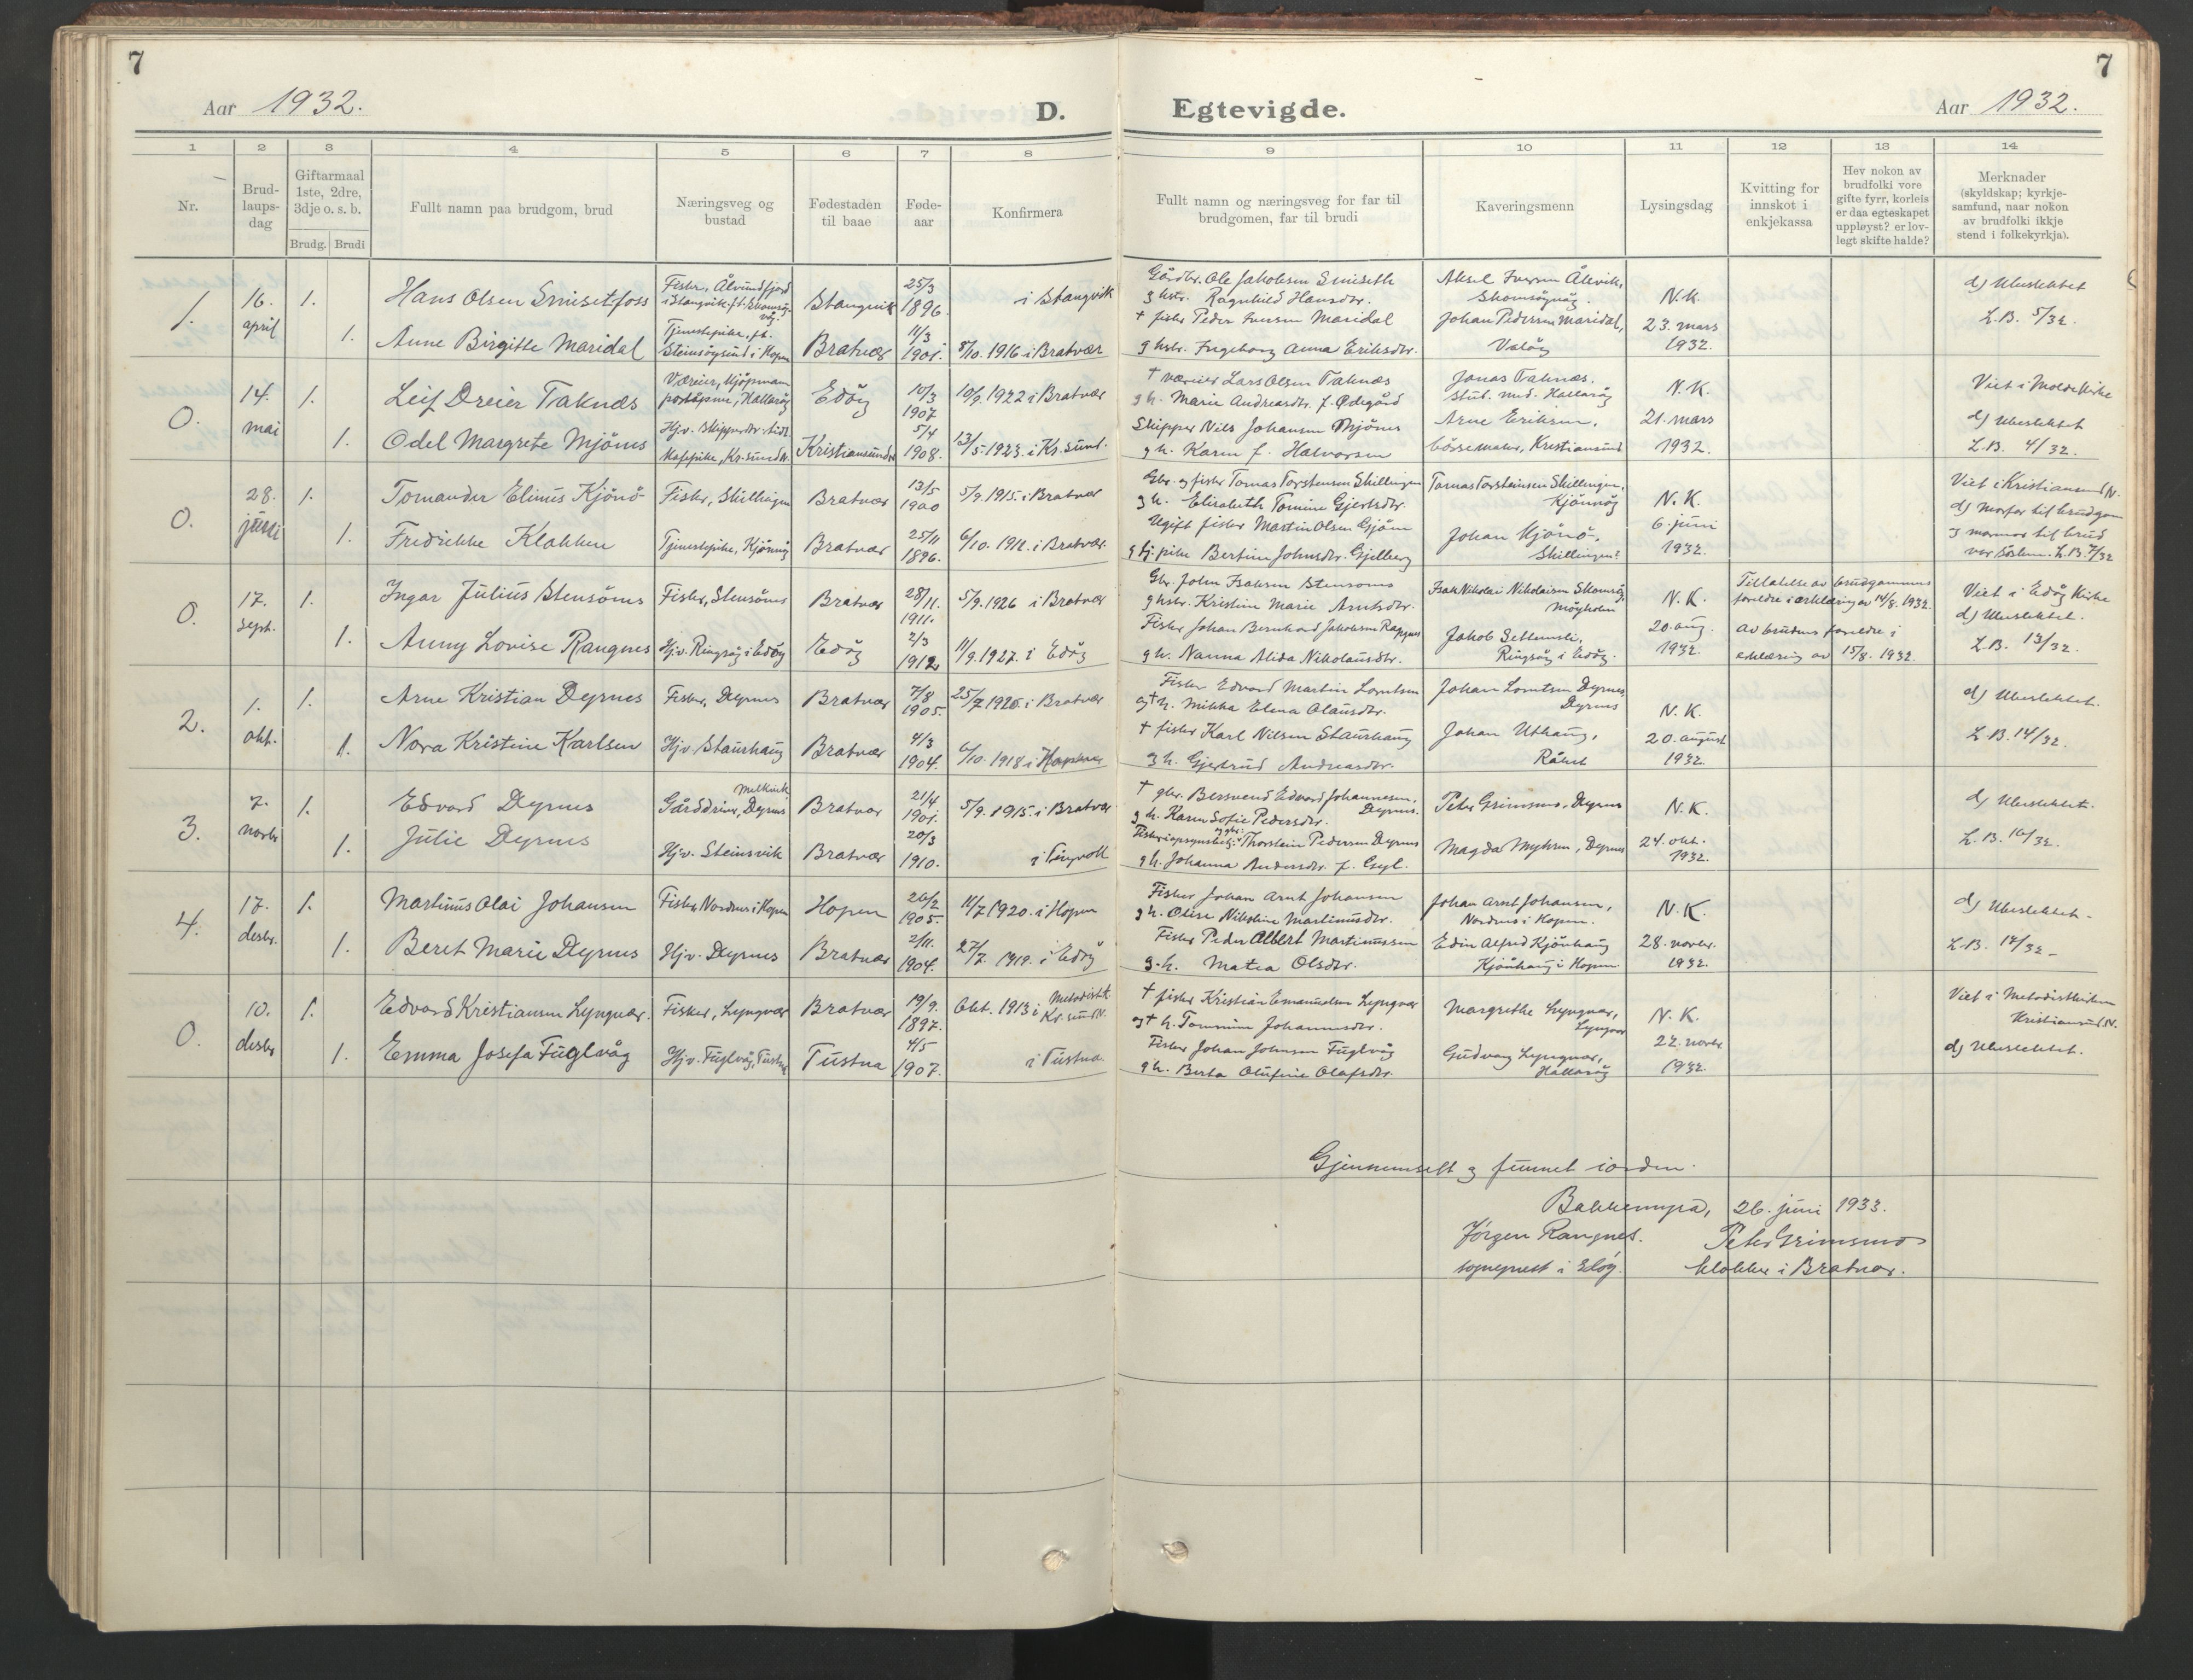 7
7
Aar 1932.
D.
Egtevigde.
Aar 1932.
1 2 3 4 5 6 7 8 9 10 11 12 13 14
Nr.
Brud-
laups-
dag
Giftarmaal
1ste, 2dre,
3dje o. s. b.
Brudg. Brudi
Fullt namn paa brudgom, brud
Næringsveg og
bustad
Fødestaden
til baae
Føde-
aar
Konfirmera
Fullt namn og næringsveg for far til
brudgomen, far til brudi
Kaveringsmenn
Lysingsdag
Kvitting for
innskot i
enkjekassa
Hev nokon av
brudfolki vore
gifte fyrr, korleis
er daa egteskapet
uppløyst? er lov-
legt skifte halde?
Merknader
(skyldskap; kyrkje-
samfund, naar nokon
av brudfolki ikkje
stend i folkekyrkja).
1. 16. april
1. Hans Olsen Smisetfoss
Fisker, Ålvundfjord
i Stangvik
Stangvik 25/3 1896. i Stangvik
Gårdbr. Ole Jakobsen Smiseth
g hstr. Ragnhild Hansdtr.
Aksel Iversen Åkvik,
N.K.
23. mars
1932.
d) Ubeslektet
L.B. 5/32.
1. Anne Birgitte Maridal
Tjenestepike, f.t.
Steinsøysund i Hopen
Bratvær 11/3 1901. 8/10. 1916 i Bratvær
† fisker Peder Iversen Maridal
g hstr. Ingeborg Anna Eriksdtr.
Johan Pedersen Maridal,
0. 14. mai
1. Leif Dreier Taknæs
Væreier, kjøpmann
Edøy 10/3 1907 10/9. 1922 i Bratvær
† væreier Lars Olsen Taknæs
g h. Marie Andreasdtr. f. Ødegård
Jonas Taknæs.
N.K.
21. mars
1932.
Viet i Molde Kirke
d) Ubeslektet
L.B. 4/32.
1. Odel Margrete Mjöms
Kristiansund 5/4 1908. 13/5. 1923. i Kr.sund.
Skipper Nils Johansen Mjöms
g h. Karen f. Halvorsen
Arne Eriksen,
børsemaker, Kristiansund
0. 28. juni
1. Tomander Elinus Kjönö
Fisker, Skillingen
Bratvær 13/5 1900 5/9. 1915. i Bratvær
Gbr. og fisker Tomas Torstensen Skillingen
g h. Elisabeth Tomine Gjertsdtr.
Tomas Torsteinsen Skillingen,
N.K.
6. juni
1932.
Viet i Kristiansund N.
d) Morfar til brudgom
og mormor til brud
var søsken. L.B. 7/32
1. Fredrikke Klokken
Tjenestepike,
Bratvær 25/11 1896. 6/10. 1912. i Bratvær.
Ugift fisker Martin Olsen Gjöm
g tj.pike Bertine Johnsdtr. Gjelberg
Johan Kjönö,
Skillingen.
0. 17. sept.
1. Ingar Julius Stensöms
Fisker, Stensöms
Bratvær 28/11. 1911. 5/9. 1926 i Bratvær
Gbr. John Isaksen Stensöms
g hstr. Kristine Marie Arntsdtr.
Isak Nikolai Nikolaisen Skomsøy,
N.K.
20. aug.
1932.
Tillatelse av brudgommens
foreldre i erklæring av 14/8. 1932.
Av brudens foreldre i
erklæring av 15/8. 1932.
Viet i Edøy Kirke
d) Ubeslektet.
L.B. 13/32.
1. Anny Lovise Rangnes
Hjv. Ringsøy i Edøy
Edøy 2/3 1912 11/9. 1927. i Edøy
Fisker Johan Bernhard Jakobsen
g h. Nanna Alida Nikolausdtr.
Jakob Settemsli,
Ringsøy i Edøy.
2. 1. okt.
1. Arne Kristian Dyrnes
Fisker, Dyrnes
Bratvær 7/8 1905. 25/7 1920. i Bratvær
Fisker Edvard Martin Lorntsen
og † h. Mikka Elena Olausdtr.
Johan Lorntsen Dyrnes
Dyrnes
N.K.
20. august
1932.
d) Ubeslektet.
L.B. 14/32.
1. Nora Kristine Karlsen
Hjv. Staurhaug
Bratvær 4/3 1904. 6/10. 1918 i Hopen
† fisker Karl Nilsen Staurhaug
g h. Gjertrud Andreasdtr.
Johan Uthaug,
Råket
3. 7. novbr
1. Edvard Dyrnes
Gårddriver, Dyrnes
Bratvær 21/4 1901. 5/9. 1915. i Bratvær
† gbr. Bersvend Edvard Johannesen,
Dyrnes.
g h. Karen Sofie Pedersdtr.
Peter Grimsmo, Dyrnes
N.K.
24. okt.
1932.
d) Ubeslektet.
L.B. 16/32.
1. Julie Dyrnes
Hjv. Steinsvik
Bratvær 20/3 1910. i Tingvoll
Thorstein Pedersen Dyrnes
g h. Johanna Andersdtr.
Magda Myhren, Dyrnes
4. 17. desbr.
1. Martinus Olai Johansen
Fisker, Nordnes i Hopen
Hopen 26/2 1905. 11/7 1920. i Hopen
Fisker Johan Arnt Johansen
g h. Olise Nikoline Martinusdtr.
Johan Arnt Johansen,
Nordnes i Hopen.
N.K.
28. novbr.
1932.
d) Ubeslektet.
L.B. 17/32
1. Beret Marie Dyrnes
Hjv. Dyrnes
Bratvær 2/11. 1904. 27/7. 1919. i Edøy
Fisker Peder Albert Martinussen
g. h. Matea Olsdtr.
Edin Alfred Kjönhaug
Kjönhaug i Hopen
0. 10. desbr
1. Edvard Kristiansen Lyngvær.
Fisker, Lyngvær
Bratvær 19/9. 1897. Okt. 1913 i Metodistk.
Kr.sund N.
† fisker Kristian Emanuelsen Lyngvær
og † h. Tommine Johannesdtr.
Margrethe Lyngvær,
Lyngvær
N.K.
22. novbr
1932.
Viet i Metodistkirken
Kristiansund N.
d) Ubeslektet.
1. Emma Josefa Fuglvåg
Hjv. Fuglvåg, Tustna
Tustna 4/5 1907. i Tustna.
Fisker Johan Johnsen Fuglvåg
g h. Berta Olufine Olafsdtr.
Gudvang Lyngvær,
Gjennemsett og funnet i orden.
Bakkemyra, 26. juni 1933.
Jörgen Rangnes. Peter Grimsmo
sogneprest i Edøy. klokker i Bratvær.